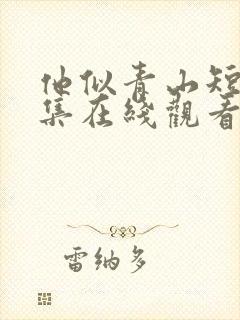 他似青山短
集在綫觀看
雷納多